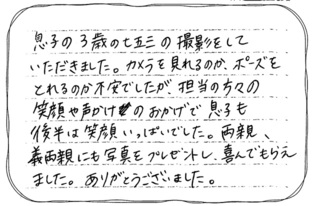 息子の3歳の七五三の撮影をして
いただきました。カメラを見れるのか、ポーズを
とれるのか不安でしたが、担当の方々の
笑顔や声かけのおかげで息子も
後半は笑顔いっぱいでした。両親、
義両親にも写真をプレゼントし、喜んでもらえ
ました。ありがとうございました。